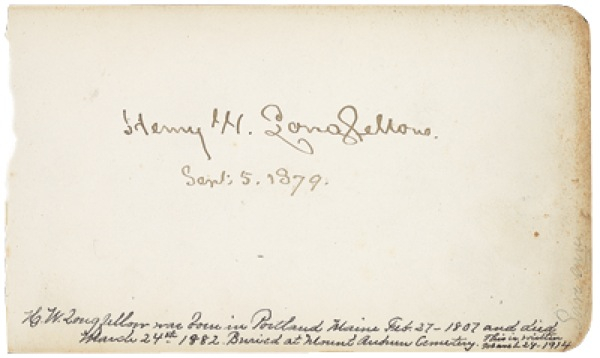 Henry W. Longfellow.
Sept: 5. 1879.
H. W. Longfellow was born in Portland Maine Feb. 27 - 1807 and died
March 24th 1882. Buried at Mount Auburn Cemetery. This is written
March 29. 1914